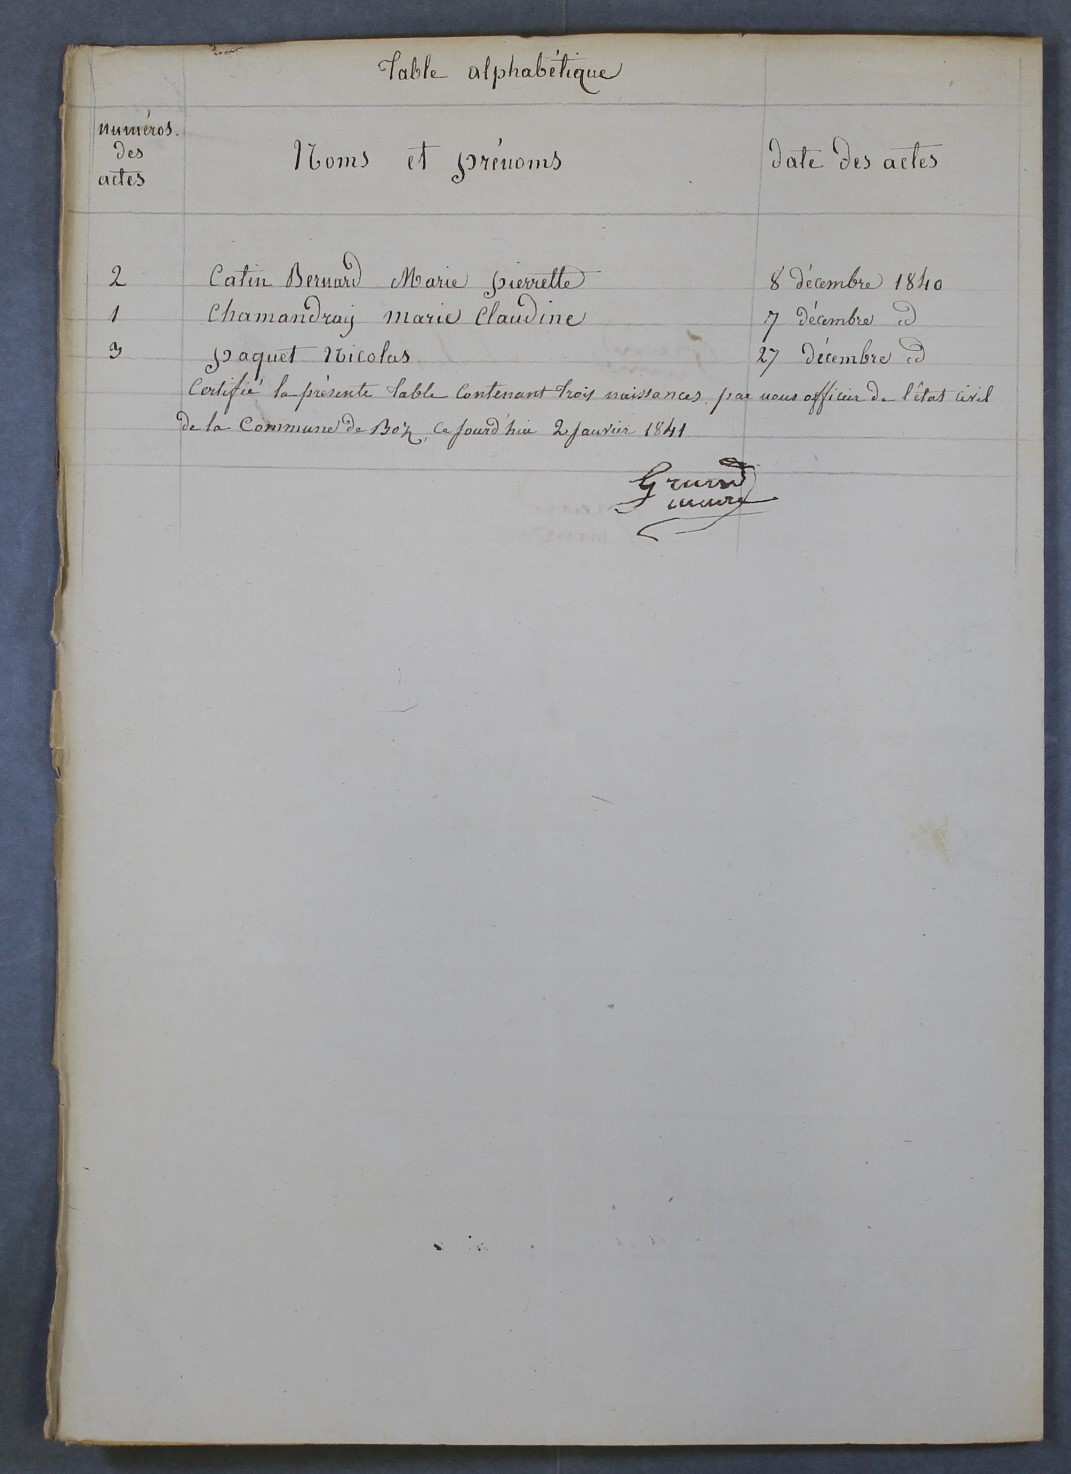 Table alphabétique
numéros
des
actes
Noms et prénoms
date des actes
2 Catin Bernard Marie pierrette 8 décembre 1840
1 Chamandray marie Claudine 7 décembre d
3 paquet Nicolas 27 décembre d
Certifié la présente Table Contenant Trois naissances par nous officier de l'état civil
de la Commune de Boz, ce jourd'hui 2 janvier 1841
maire